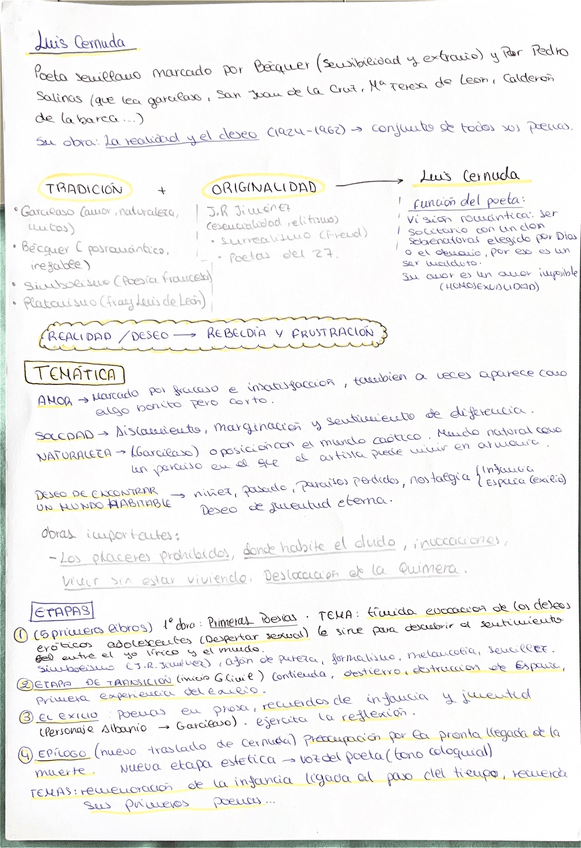 Luis Cernuda
Poeta sevillano marcado por Bécquer (sensibilidad y extraño) y por Pedro
Salinas (que lea garcilaso, San Juan de la Cruz, Mª Teresa de León, Calderón
de la barca...)
Su obra: La realidad y el deseo (1924-1962) → conjunto de todos sus poemas.
TRADICIÓN + ORIGINALIDAD → Luis Cernuda
• Garcilaso (amor, naturaleza,
mitos)
• Bécquer (posromántico,
inefable)
• Simbolismo (Poesía francesa)
• Platonismo (Fray Luis de León)
J.R Jiménez
(esencialidad, elitismo)
• Surrealismo (Freud)
• Poetas del 27.
Función del poeta:
Visión romántica: ser
solitario con un don
sobrenatural elegido por Dios
o el demonio, por eso es un
ser maldito.
Su amor es un amor imposible
(HOMOSEXUALIDAD)
REALIDAD / DESEO → REBELDÍA Y FRUSTRACIÓN
TEMÁTICA
AMOR → Marcado por fracaso e insatisfacción, tambien a veces aparece como
algo bonito pero corto.
SOLEDAD → Aislamiento, marginación y sentimiento de diferencia.
NATURALEZA → (Garcilaso) oposición con el mundo caótico. Mundo natural como
un paraiso en el que el artista puede vivir en armonía.
DESEO DE ENCONTRAR
UN MUNDO HABITABLE → niñez, pasado, paraísos perdidos, nostalgia { Infancia
España (exilio)
Deseo de juventud eterna.
Obras importantes:
- Los placeres prohibidos, donde habite el olvido, invocaciones,
Vivir sin estar viviendo. Desolación de la Quimera.
ETAPAS
① (5 primeros libros) 1ª obra: Primeras Poesías. TEMA: tímida evocación de los deseos
eróticos adolescentes (Despertar sexual) le sirve para descubrir el sentimiento
entre el yo lírico y el mundo.
Simbolismo (J.R. Jiménez), afán de pureza, formalismo, melancolía, sencillez.
② ETAPA DE TRANSICIÓN (inicio G.Civil) contienda, destierro, destrucción de España,
Primera experiencia del exilio.
③ EL EXILIO: Poemas en prosa, recuerdos de infancia y juventud
(Personaje Albanio → Garcilaso). ejercita la reflexión.
④ EPÍLOGO (nuevo traslado de Cernuda) Preocupación por la pronta llegada de la
muerte. Nueva etapa estética → voz del poeta (tono coloquial)
TEMAS: rememoración de la infancia ligada al paso del tiempo, recuerda
sus primeros poemas...